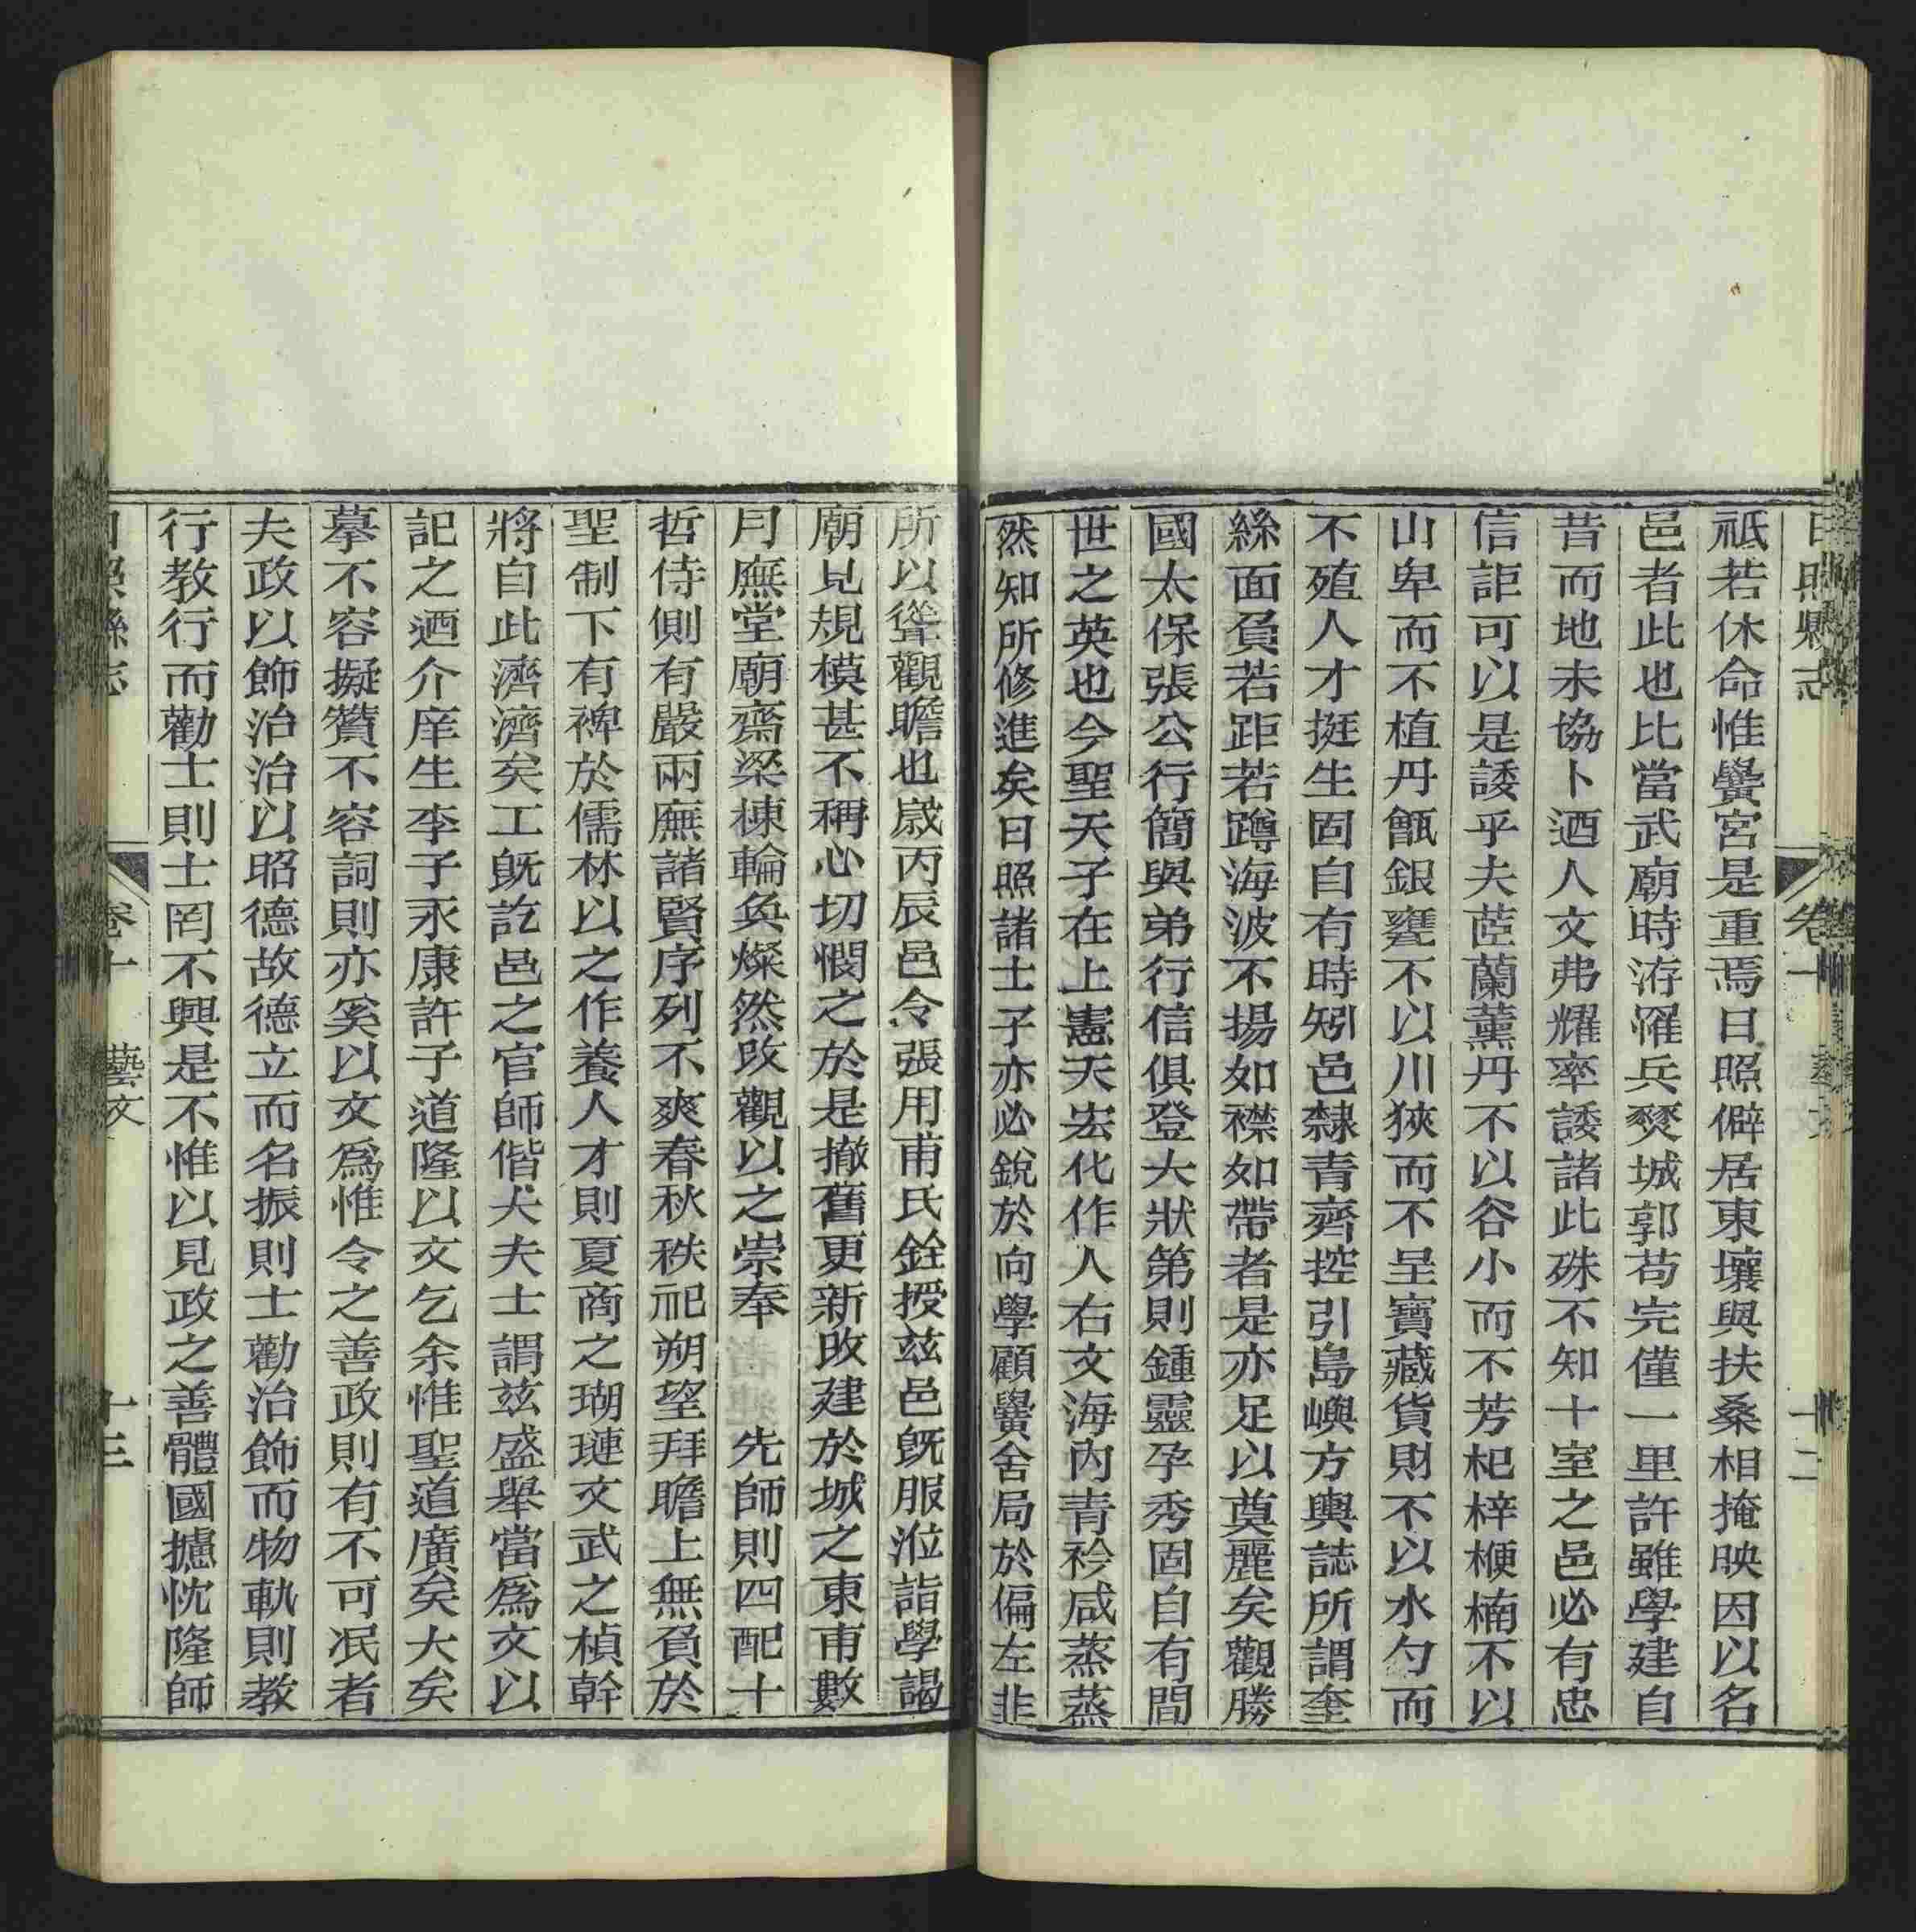 日照縣志 卷十 十二
祇若休命惟黌宮是重焉日照僻居東壤與扶桑相掩映因以名
邑者此也比當武廟時洊罹兵燹城郭苟完僅一里許雖學建自
昔而地未協卜迺人文弗耀率諉諸此殊不知十室之邑必有忠
信詎可以是諉乎夫茝蘭薰丹不以谷小而不芳杞梓楩楠不以
山卑而不植丹甑銀甕不以川狹而不呈寶藏貨財不以水勺而
不殖人才挺生固自有時矧邑隸青齊控引島嶼方輿誌所謂奎
絲面負若距若蹲海波不揚如襟如帶者是亦足以奠麗矣觀勝
國太保張公行簡與弟行信俱登大狀第則鍾靈孕秀固自有間
世之英也今聖天子在上憲天宏化作人右文海內青衿咸蒸蒸
然知所修進矣日照諸士子亦必銳於向學顧黌舍局於偏左非
所以聳觀瞻也歲丙辰邑令張用甫氏銓授玆邑旣服涖詣學謁
廟見規模甚不稱心切憫之於是撤舊更新改建於城之東甫數
月廡堂廟齋梁棟輪奐燦然改觀以之崇奉 先師則四配十
哲侍側有嚴兩廡諸賢序列不爽春秋秩祀朔望拜瞻上無負於
聖制下有裨於儒林以之作養人才則夏商之瑚璉文武之楨幹
將自此濟濟矣工旣訖邑之官師偕犬夫士謂玆盛舉當爲文以
記之迺介庠生李子永康許子道隆以文乞余惟聖道廣矣大矣
摹不容擬贊不容詞則亦奚以文爲惟令之善政則有不可泯者
夫政以飾治治以昭德故德立而名振則士勸治飾而物軌則教
行教行而勸士則士罔不興是不惟以見政之善體國攄忱隆師
日照縣志 卷十 藝文 十三